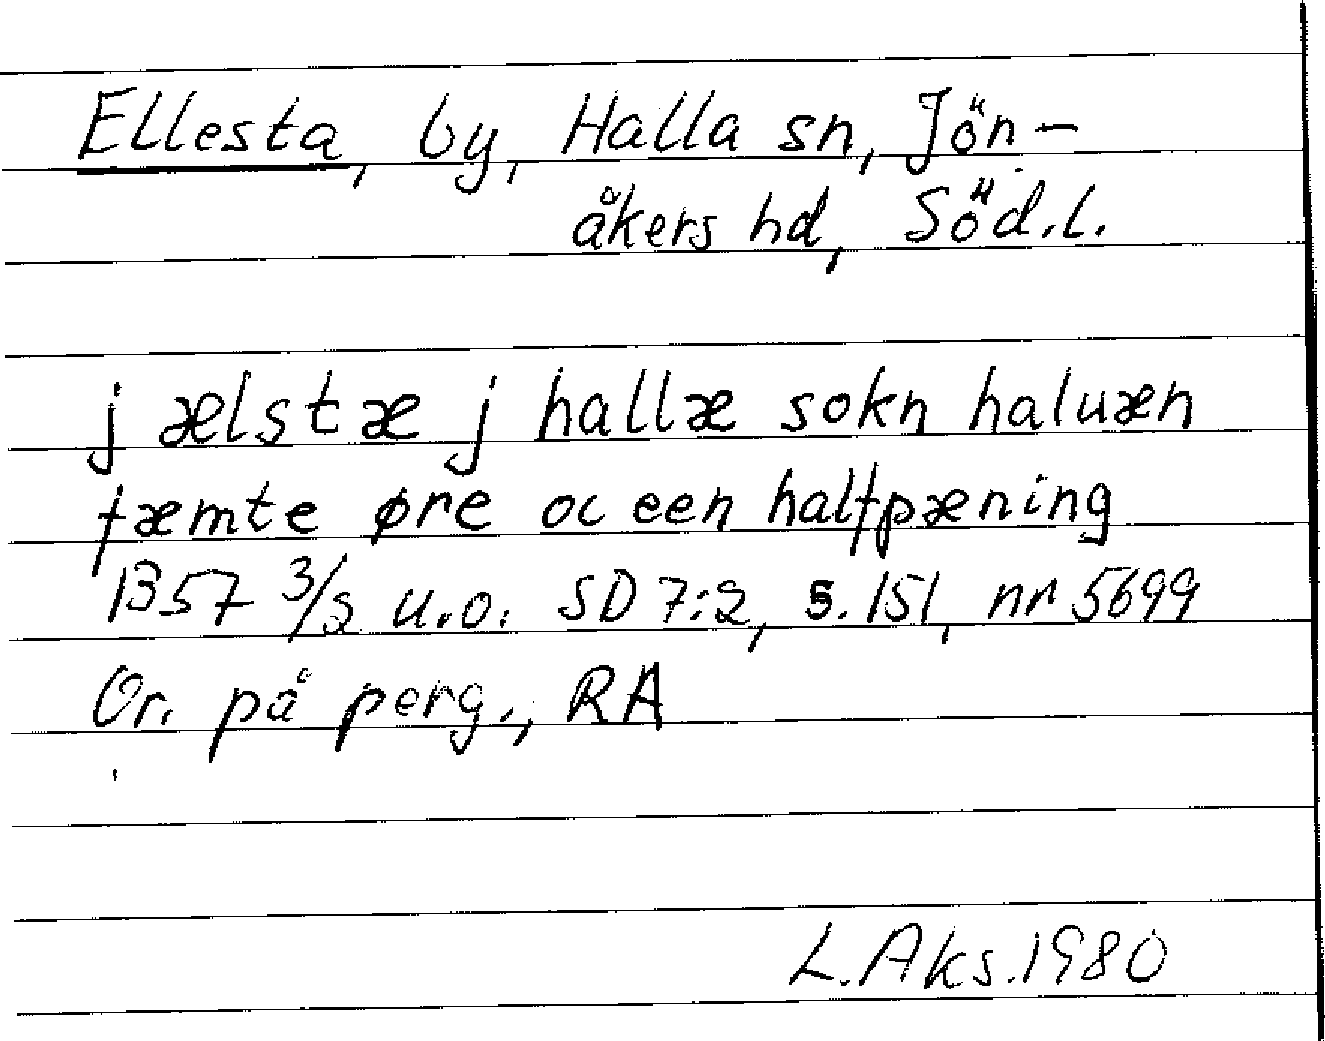 Ellesta, by, Halla sn, Jön-
åkers hd, Söd.l.
j ælstæ j hallæ sokn haluæn
fæmte øre oc een halfpæning
1357 3/3 u.o. SD 7:2, s. 151, nr 5699
Or. på perg., RA
L. Aks. 1980